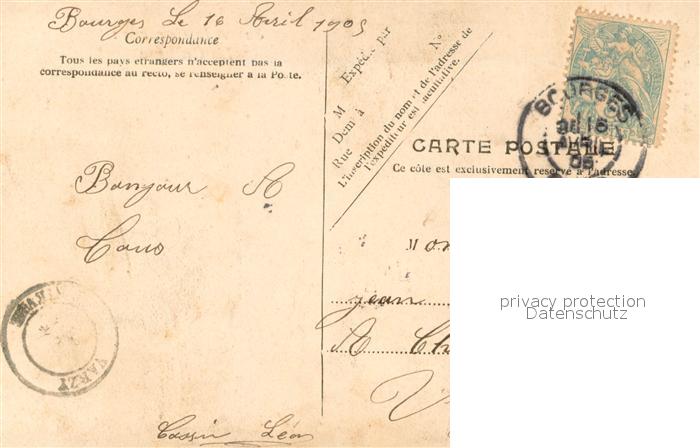 Bourges Le 16 Avril 1905
Correspondance
Tous les pays étrangers n'acceptent pas la
correspondance au recto, se renseigner à la Poste.
Bonjour A
Tous
VARZY
Cassin Léon
Expédié par
M
Demt à
Rue
No
L'inscription du nom et de l'adresse de
l'expéditeur est facultative.
BOURGES
16
05
CARTE POSTALE
Ce côté est exclusivement réservé à l'adresse.
Mon
jean
A Ch
V
privacy protection
Datenschutz